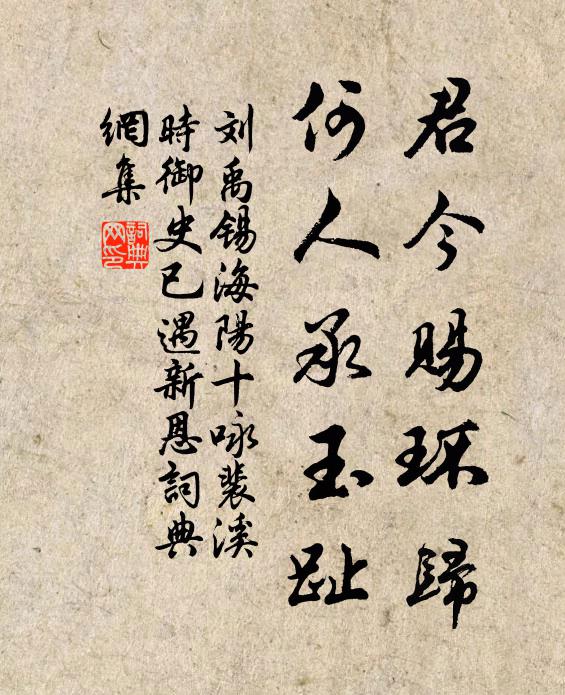 君今賜环歸
何人承玉趾
刘禹锡海陽十咏裴溪
時御史已遇新恩詞典
網集
詞典
网印